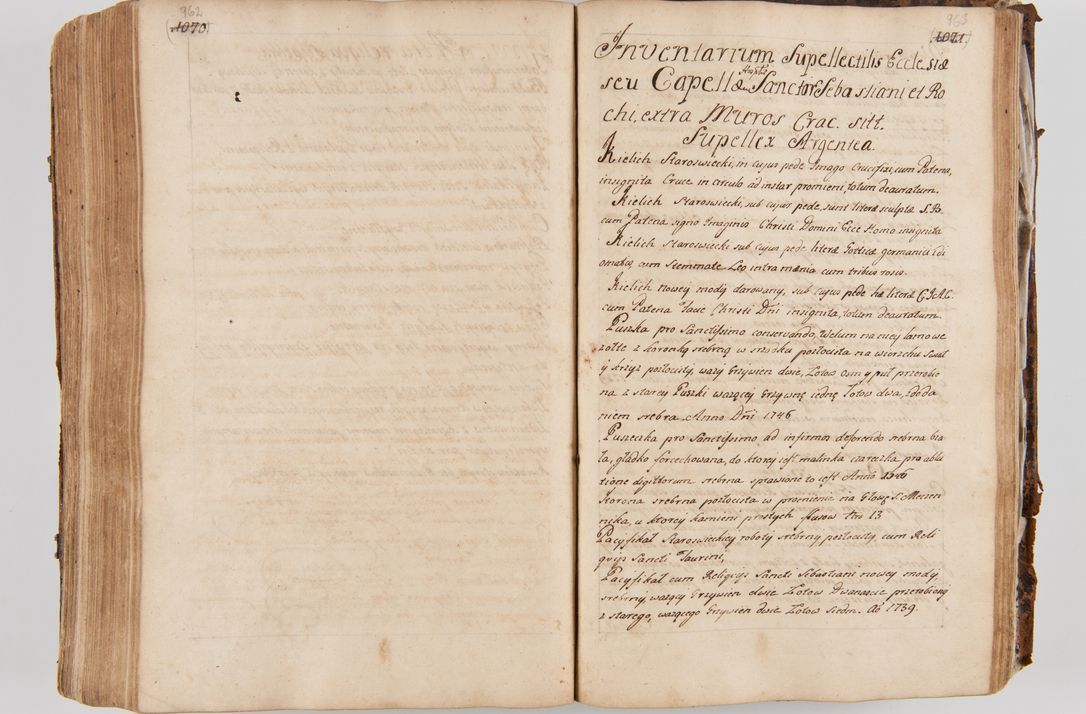 962
(1070)
963
1071.
Inventarium Supellectilis Ecclesiæ
seu Capellæ Hosplis Sanctor Sebastiani et Ro
chi, extra Muros Crac. sitt.
Supellex Argentea.
Kielich Staroswiecki, in cujus pede Imago Crucifixi, cum Patena,
insignita Cruce in circulo ad instar promieni, totum deauratum.
Kielich Staroswiecki, sub cujus pede, sunt literæ sculptæ S. Ro.
cum Patena signo Imaginis Christi Domini Ecce Homo insignita
Kielich Staroswiecki sub cujus pede literæ Gotticæ germanicæ
cum Stemmate Leo intra mænia cum tribus rosis.
Kielich nowey mody darowany, sub cujus pede hæ literæ C.J.A.C.
cum Patena Facie Christi Dñi insignita, totum deauratum.
Puszka pro Sanctissimo conservando, Welum na niey lamowe
zołte z koronką srebrną w srodku pozłocista na wierzchu
y krzyz pozłocisty, wazy Grzywien dwie, Łotow Osm y puł przerobio
na z starey Puszki wazącey Grzywnę iednę Łotow dwa, z doda
niem srebra Anno Dñi 1746
Puszeczka pro Sanctissimo ad infirmos deferendo srebrna bia
ła, gładko forcechowana, do ktorey iest malinka czareczka pro ablu
tione digittorum srebrna sprawione to iest Anno 1746
Korona srebrna pozłocista w promienie na Głowę S. Męczen
nika, u ktorey kamieni prostych flusow Nro 13
Pacyfikał Staroswieckiey roboty srebrny pozłocisty, cum Reli
qvijs Sancti Taurini,
Pacyfikał cum Reliqvijs Sancti Sebastiani nowey mody
srebrny, wazący Grzywien dwie Łotow Dwanascie przerobiony
z starego, wazącego Grzywien dwie Łotow siedm. Ao 1739.